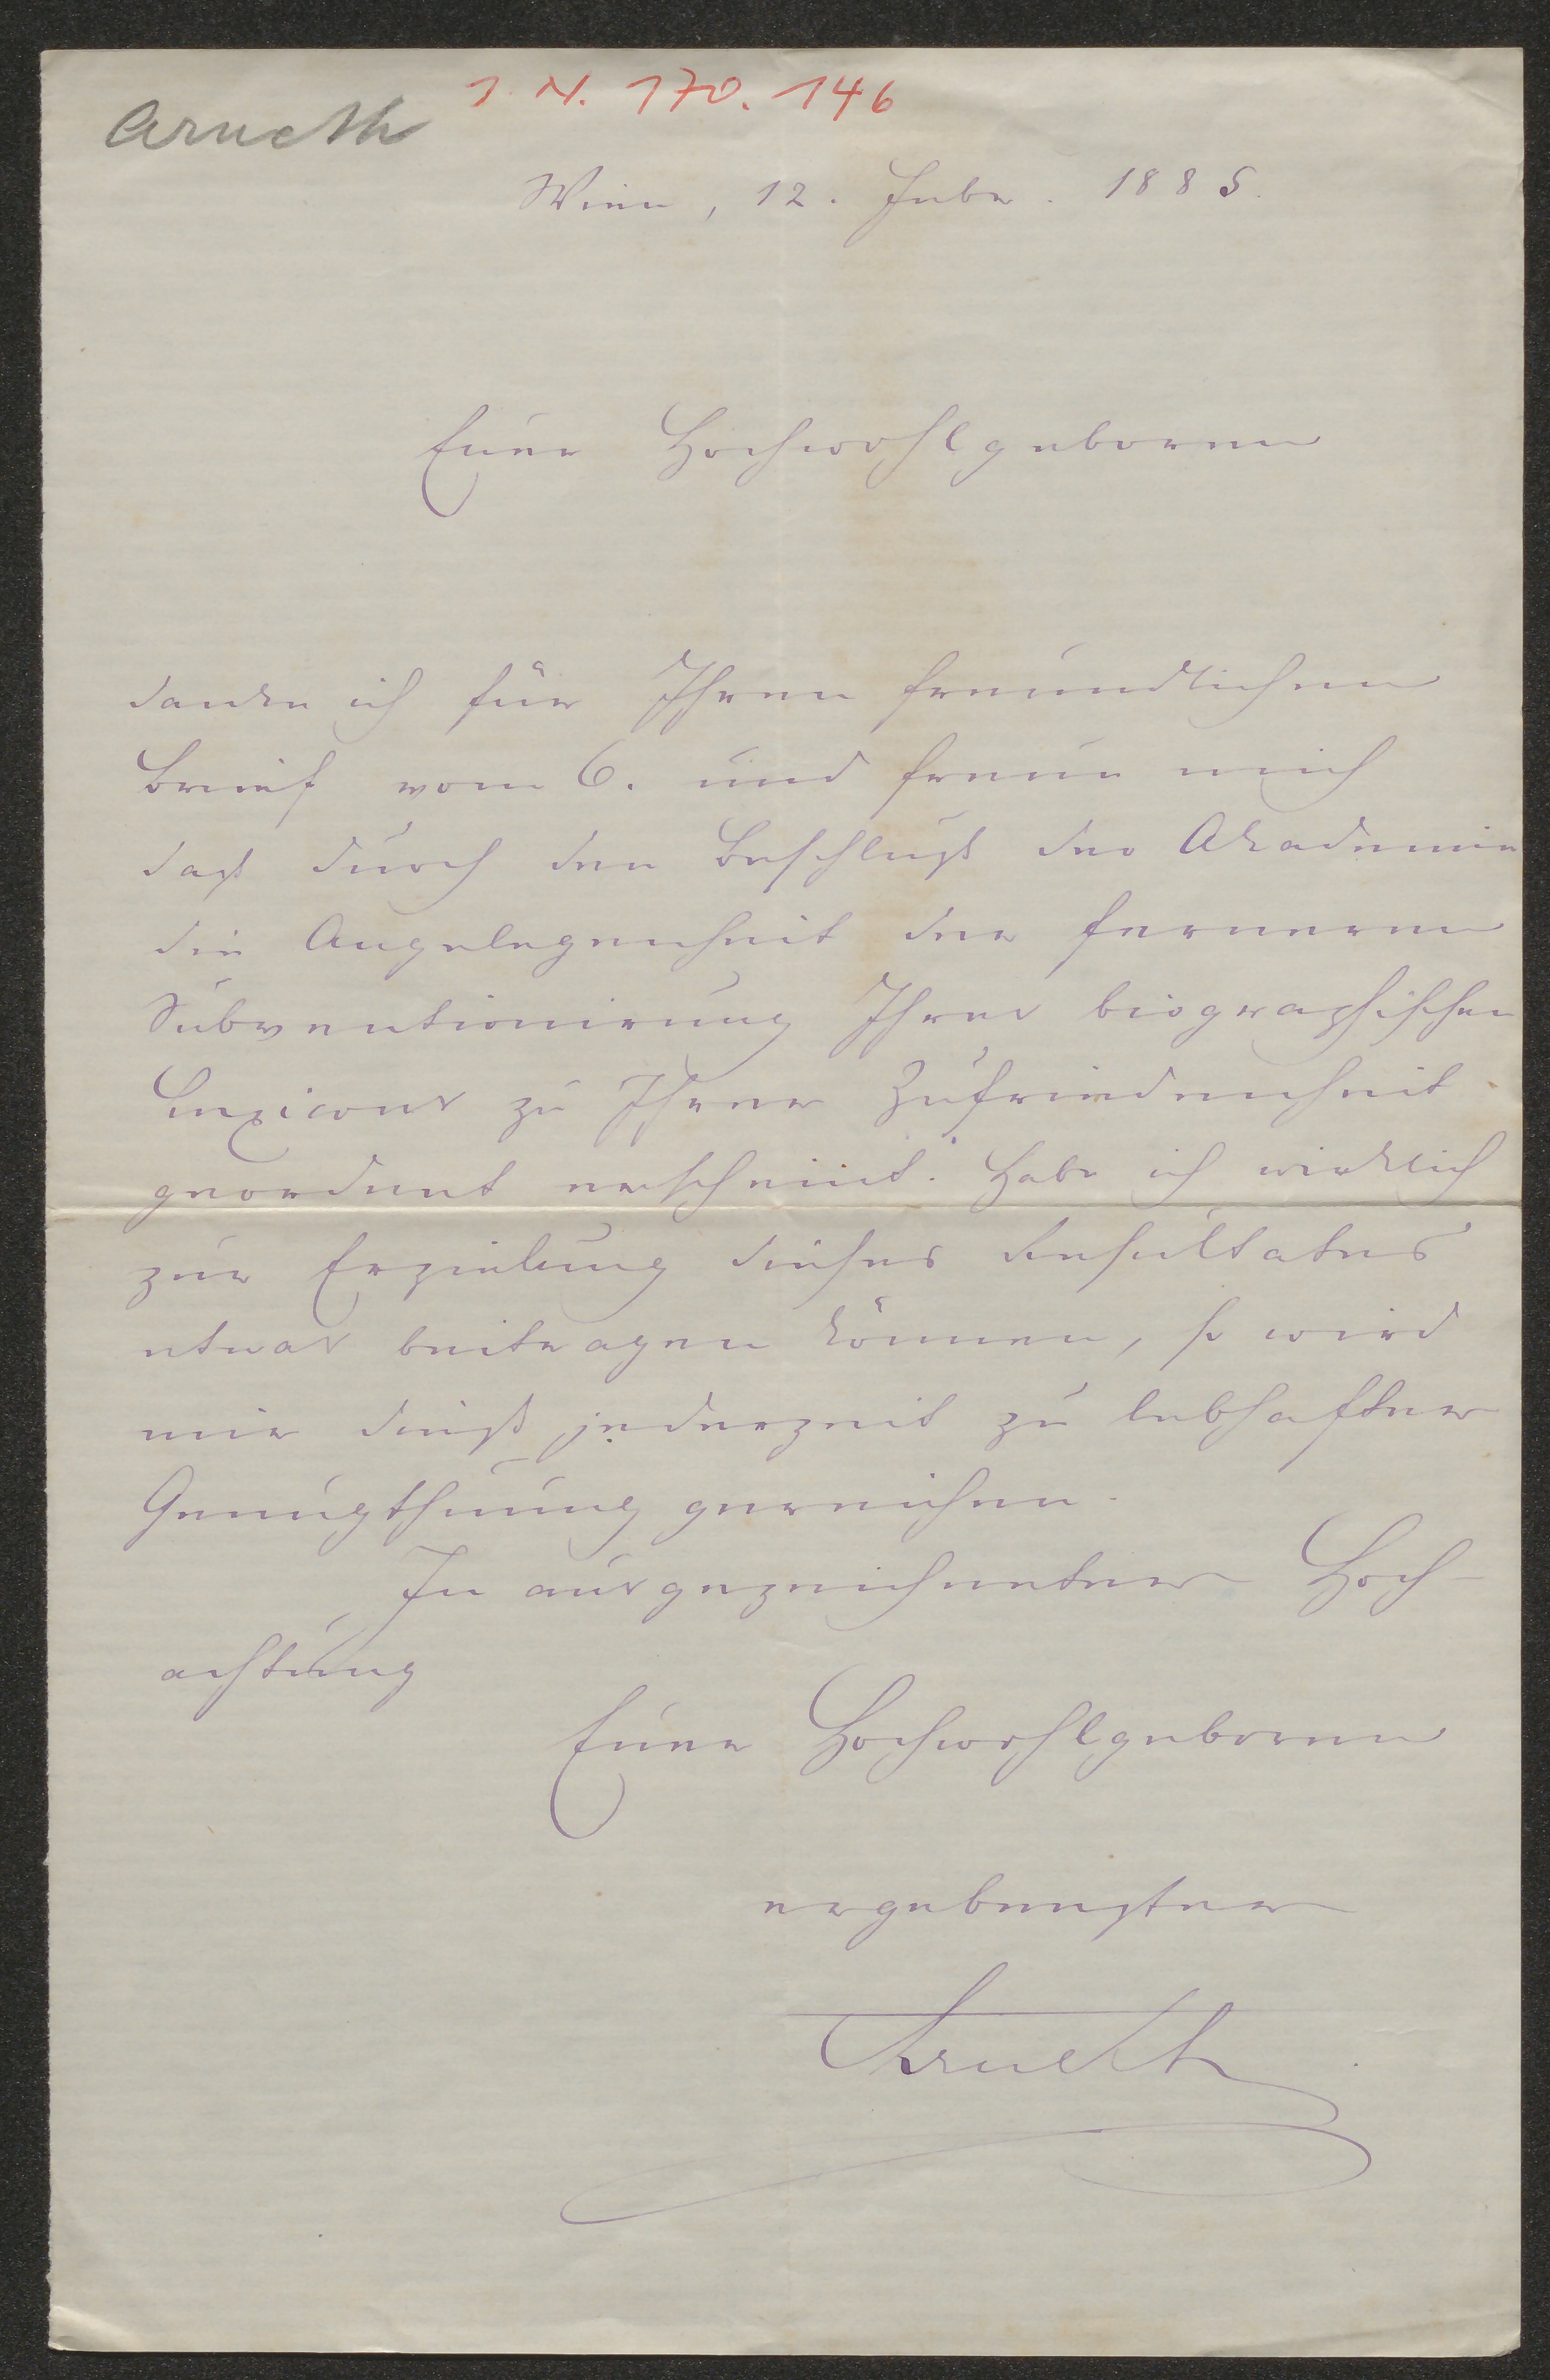 Arneth
I. N. 170.146
Wien, 12. Febr. 1885.
Euer Hochwohlgeboren
danke ich für Ihren freundlichen
Brief vom 6. und freue mich
daß durch den Beschluß der Akademie
die Angelegenheit der ferneren
Subventionirung Ihres biographischen
Lexicons zu Ihrer Zufriedenheit
geordnet erscheint. Habe ich wirklich
zur Erzielung dieses Resultates
etwas beitragen können, so wird
mir dieß jederzeit zu lebhafter
Genugthuung gereichen.
In ausgezeichneter Hoch-
achtung
Euer Hochwohlgeboren
ergebenster
Arneth